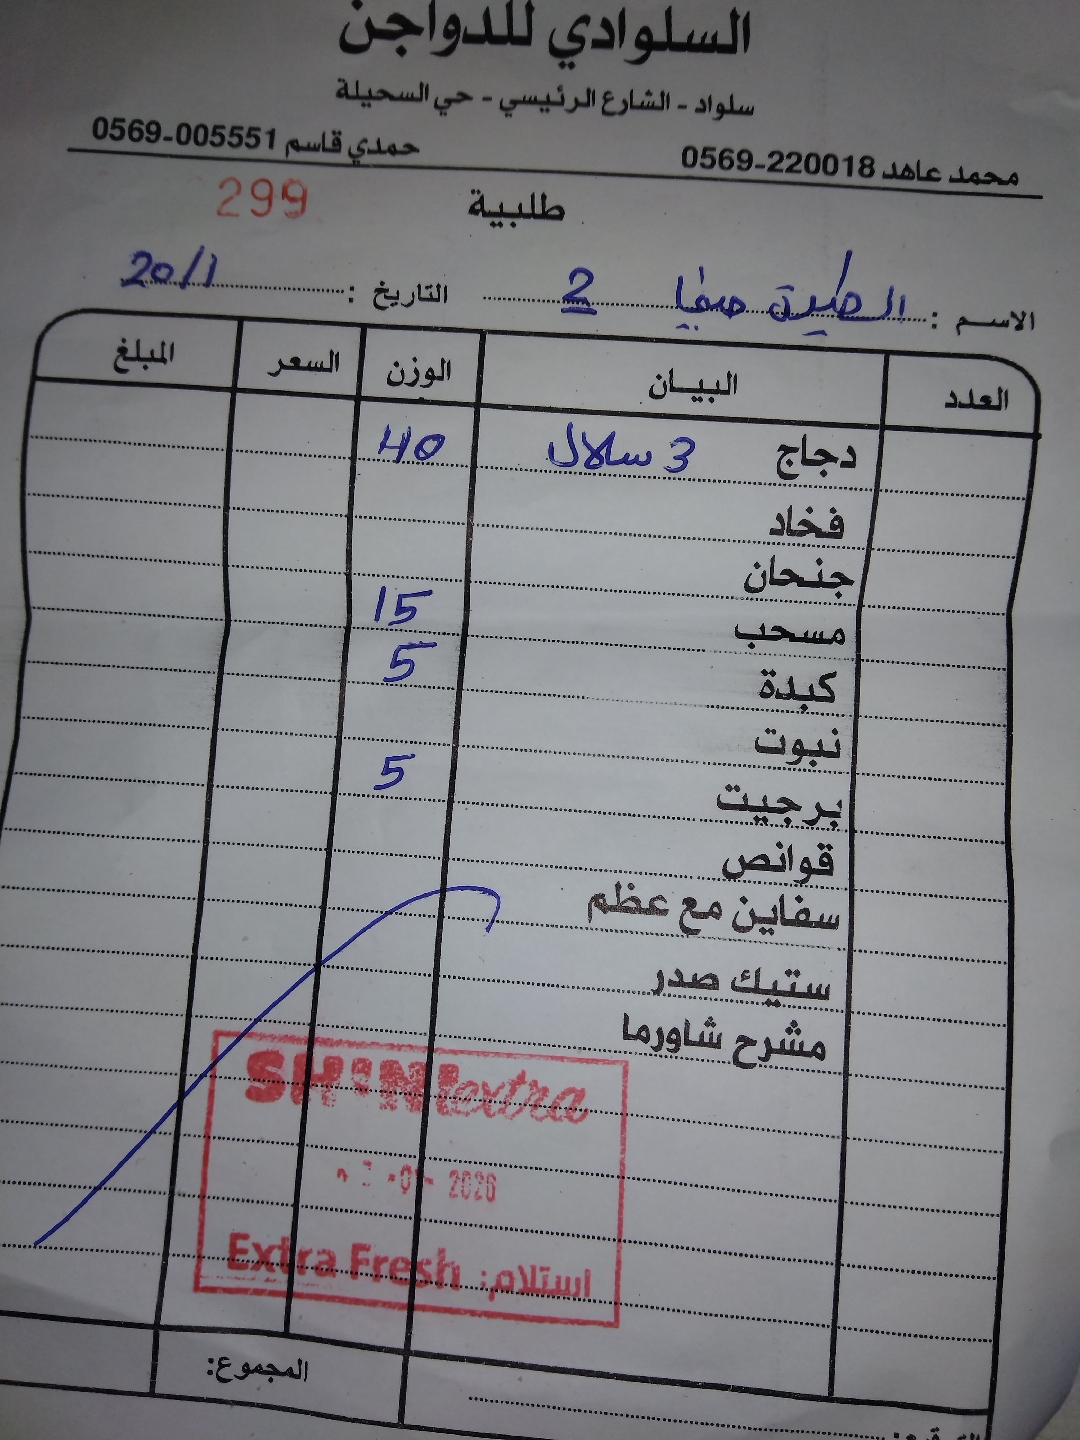 السلوادي للدواجن
سلواد - الشارع الرئيسي - حي السحيلة
محمد عاهد 0569-220018 حمدي قاسم 0569-005551
طلبية 299
الاسم : 2 التاريخ : 20/1
العدد البيان الوزن السعر المبلغ
دجاج 3 سلال 40
فخاد
جنحان
مسحب 15
كبدة 5
نبوت
برجيت 5
قوانص
سفاين مع عظم
ستيك صدر
مشرح شاورما
SHINI extra
2026
Extra Fresh استلام:
المجموع: